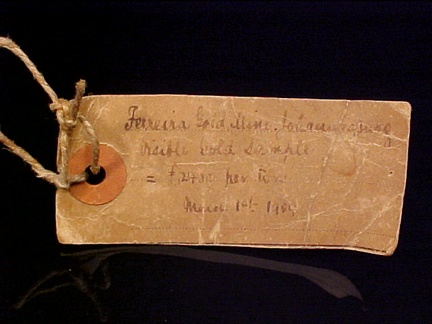 Ferreira Gold Mine, Johannesburg
Visible Gold Sample
= $2400 per ton
March 1st